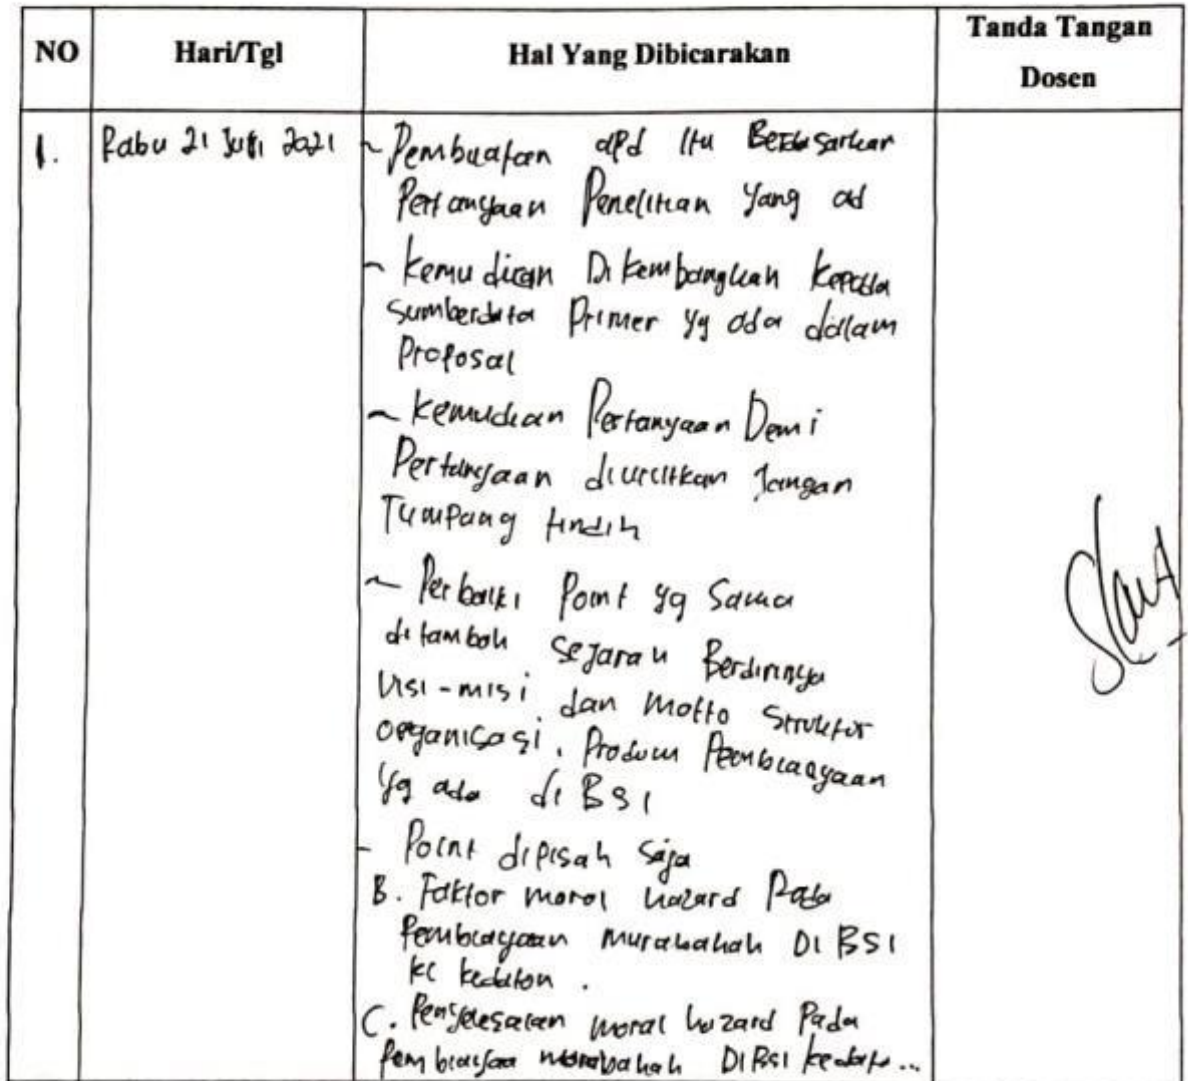 NO
Hari/Tgl
Hal Yang Dibicarakan
Tanda Tangan
Dosen
1.
Rabu 21 Juli 2021
- Pembuatan apd itu Berdasarkan
Pertanyaan Penelitian Yang ad
- Kemudian Dikembangkan Kepada
Sumberdata Primer yg ada dalam
Proposal
- Kemudian Pertanyaan Demi
Pertanyaan diurutkan Jangan
Tumpang tindih
- Perbaiki Point yg Sama
ditambah Sejarah Berdirinya
Visi-misi dan Motto Struktur
organisasi, Produk Pembiayaan
yg ada di BSI
- Point dipisah saja
B. Faktor moral hazard Pada
Pembiayaan murabahah DI BSI
KC Kedaton .
C. Penyelesaian moral hazard Pada
Pembiayaa murabahah DI BSI Kedato...